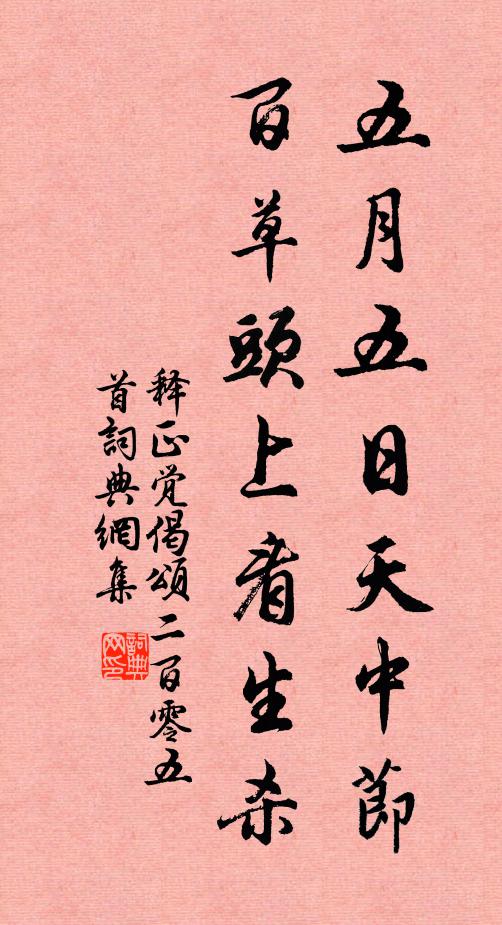 五月五日天中節
百草頭上看生杀
释正覺偈頌二百零五
首詞典網集
詞典网印